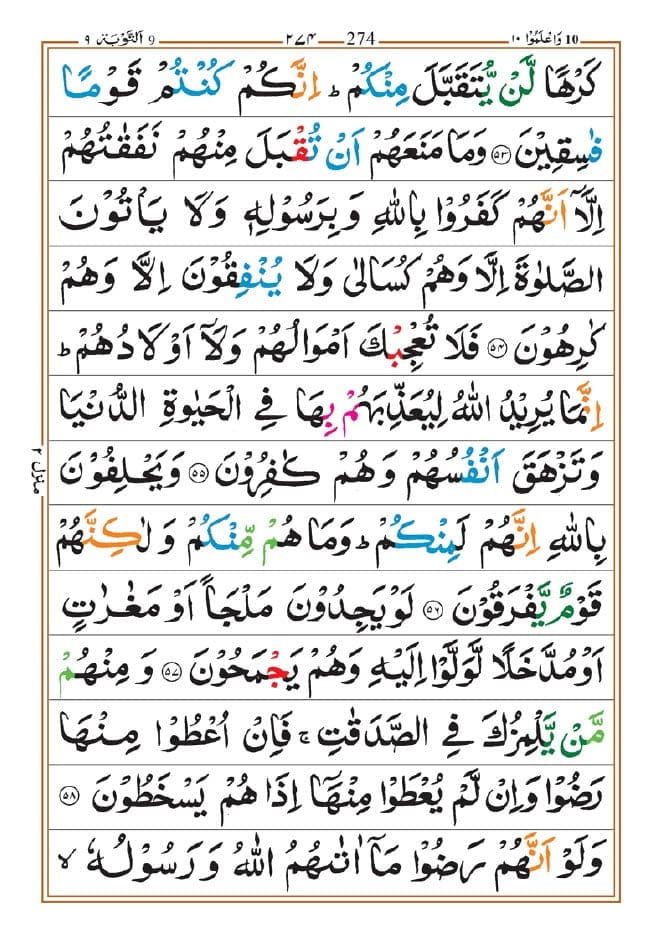 10 وَاعْلَمُوْا ۱۰ 274 ۲۷۴ 9 اَلتَّوْبَة ۹
كَرْهًا لَّنْ يُّتَقَبَّلَ مِنْكُمْ ؕ اِنَّكُمْ كُنْتُمْ قَوْمًا
فٰسِقِيْنَ ۵۳ وَمَا مَنَعَهُمْ اَنْ تُقْبَلَ مِنْهُمْ نَفَقٰتُهُمْ
اِلَّاۤ اَنَّهُمْ كَفَرُوْا بِاللّٰهِ وَبِرَسُوْلِهٖ وَلَا يَاْتُوْنَ
الصَّلٰوةَ اِلَّا وَهُمْ كُسَالٰى وَلَا يُنْفِقُوْنَ اِلَّا وَهُمْ
كٰرِهُوْنَ ۵۴ فَلَا تُعْجِبْكَ اَمْوَالُهُمْ وَلَاۤ اَوْلَادُهُمْ ؕ
اِنَّمَا يُرِيْدُ اللّٰهُ لِيُعَذِّبَهُمْ بِهَا فِي الْحَيٰوةِ الدُّنْيَا
وَتَزْهَقَ اَنْفُسُهُمْ وَهُمْ كٰفِرُوْنَ ۵۵ وَيَحْلِفُوْنَ
بِاللّٰهِ اِنَّهُمْ لَمِنْكُمْ ؕ وَمَا هُمْ مِّنْكُمْ وَلٰكِنَّهُمْ
قَوْمٌ يَّفْرَقُوْنَ ۵۶ لَوْ يَجِدُوْنَ مَلْجَاً اَوْ مَغٰرٰتٍ
اَوْ مُدَّخَلًا لَّوَلَّوْا اِلَيْهِ وَهُمْ يَجْمَحُوْنَ ۵۷ وَمِنْهُمْ
مَّنْ يَّلْمِزُكَ فِي الصَّدَقٰتِ ۚ فَاِنْ اُعْطُوْا مِنْهَا
رَضُوْا وَاِنْ لَّمْ يُعْطَوْا مِنْهَاۤ اِذَا هُمْ يَسْخَطُوْنَ ۵۸
وَلَوْ اَنَّهُمْ رَضُوْا مَاۤ اٰتٰىهُمُ اللّٰهُ وَرَسُوْلُهٗ ۙ
منزل ۲